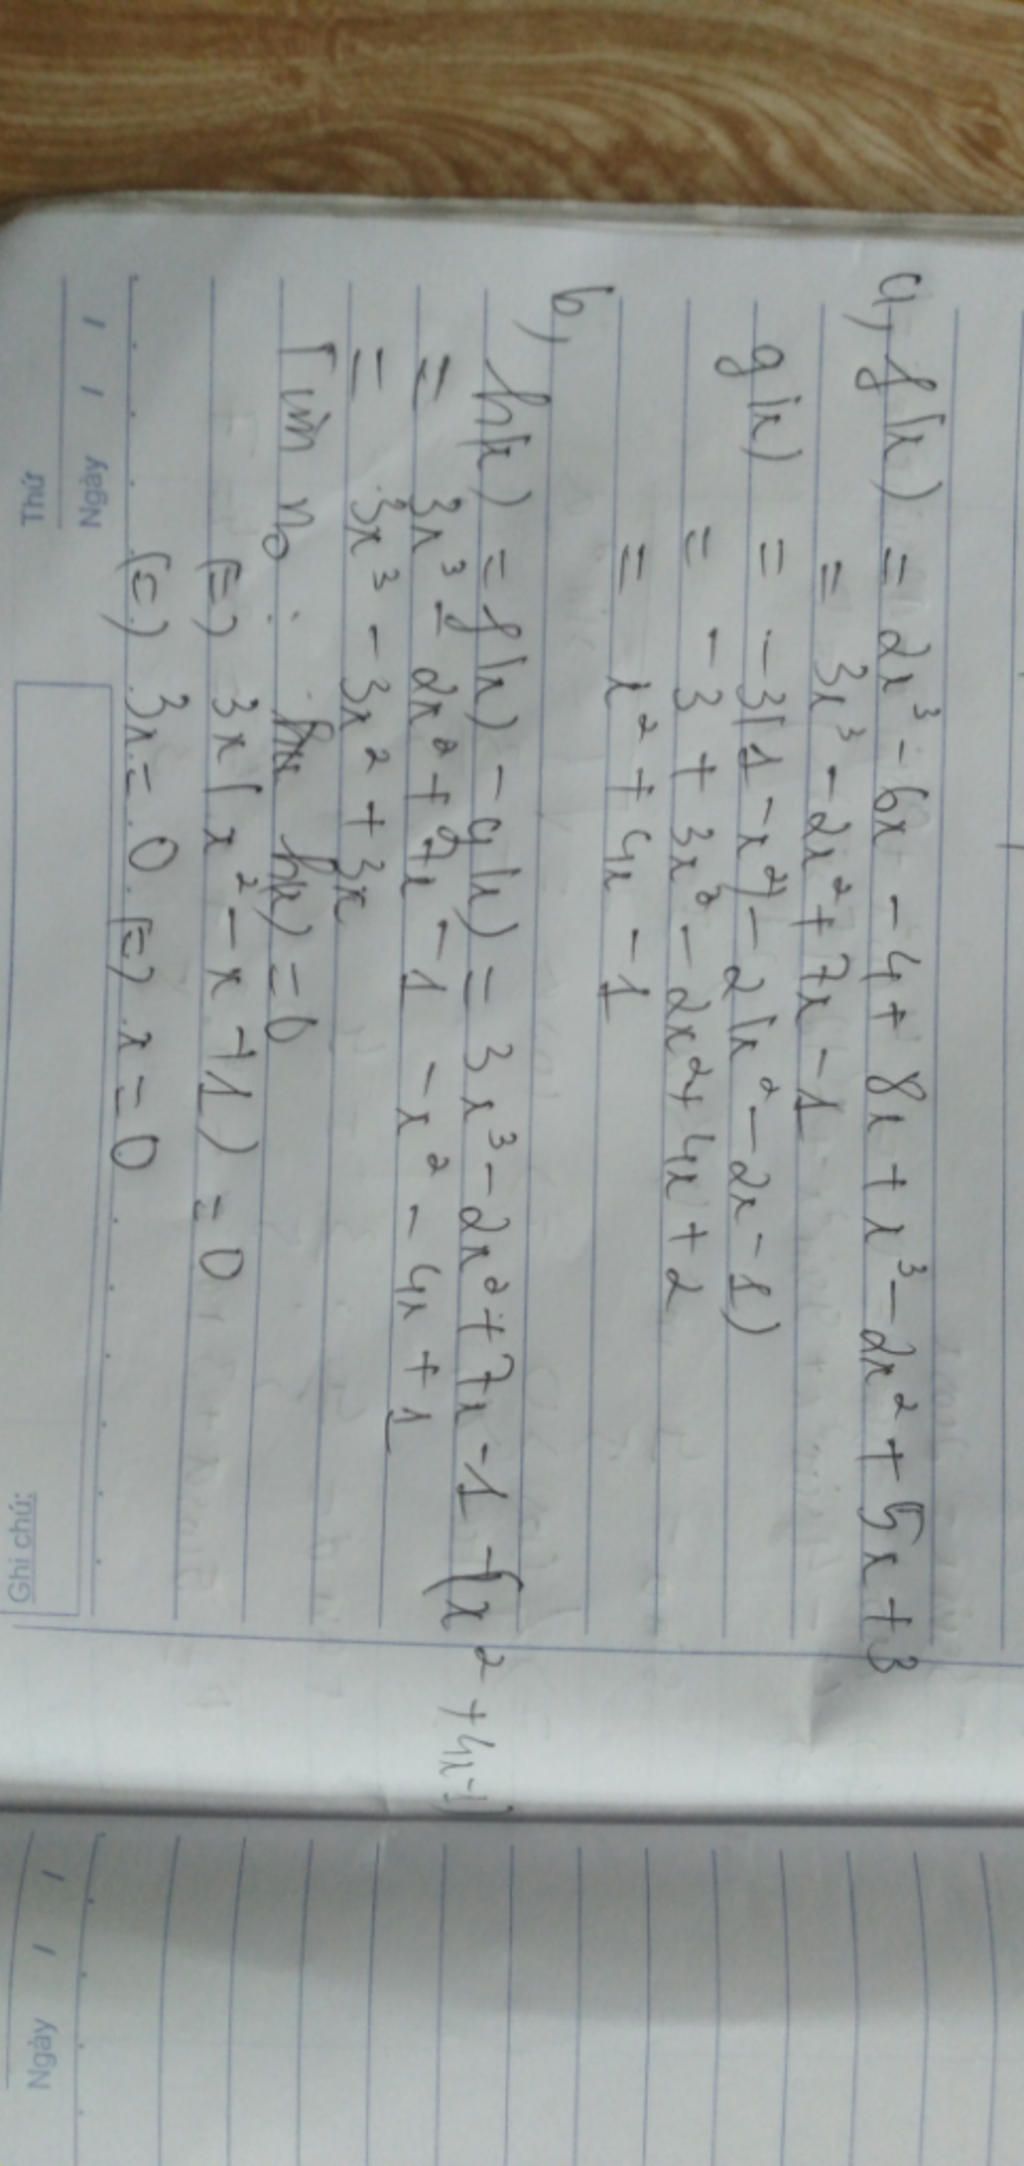 a, f(x) = 2x³ - 6x - 4 + 8x + x³ - 2x² + 5x + 3
= 3x³ - 2x² + 7x - 1
g(x) = -3(1 - x²) - 2(x² - 2x - 1)
= -3 + 3x² - 2x² + 4x + 2
= x² + 4x - 1
b,
h(x) = f(x) - g(x) = 3x³ - 2x² + 7x - 1 - (x² + 4x - 1)
= 3x³ - 2x² + 7x - 1 - x² - 4x + 1
= 3x³ - 3x² + 3x
Tìm n₀ : h(x) = 0
(=) 3x(x² - x + 1) = 0
(=) 3x = 0 (=) x = 0
Thứ
Ngày / /
Ghi chú:
Ngày / /